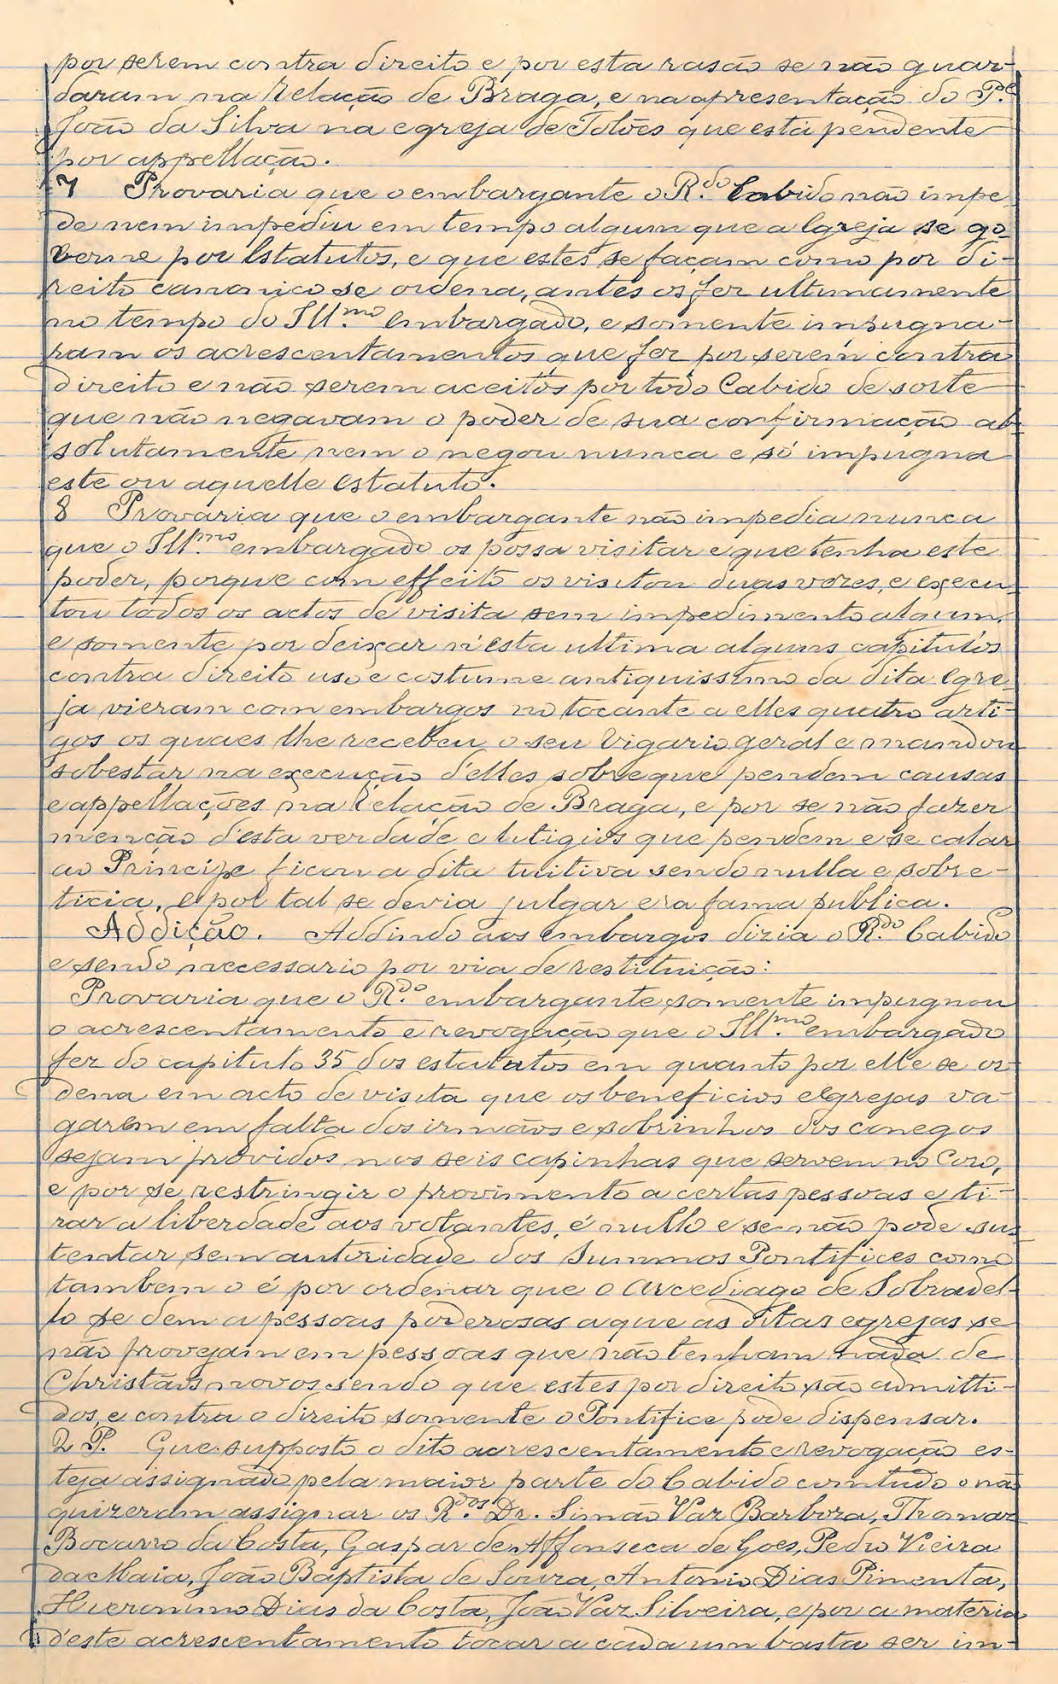 por serem contra direito e por esta rasão se não guar-
daram na Relação de Braga, e na apresentação do P.e
João da Silva na egreja de Tolões que está pendente
por appellação.
7 Provaria que o embargante o R.do Cabido não impe
de nem impediu em tempo algum que a Egreja se go
verne por Estatutos, e que estes se façam como por di-
reito canonico se ordena, antes os fez ultimamente
no tempo do Ill.mo embargado, e somente impugna-
ram os acrescentamentos que fez por serem contra
direito e não serem aceitos por todo Cabido de sorte
que não negavam o poder de sua confirmação ab-
solutamente nem o negou nunca e só impugna
este ou aquelle estatuto.
8 Provaria que o embargante não impedia nunca
que o Ill.mo embargado os possa visitar e que tenha este
poder, porque com effeito os visitou duas vezes, e execu-
tou todos os actos de visita sem impedimento algum,
e somente por deixar n'esta ultima alguns capitulos
contra direito uso e costume antiquissimo da dita Egre-
ja vieram com embargos no tocante a elles quatro arti-
gos os quaes lhe recebeu o seu Vigario geral e mandou
sobestar na execução d'elles sobre que pendem causas
e appellações na Relação de Braga, e por se não fazer
menção d'esta verdade e litigios que pendem e se calar
ao Principe ficou a dita tuitiva sendo nulla e sobre-
ticia, e por tal se devia julgar era fama publica.
Addição. Addindo aos embargos dizia o R.do Cabido
e sendo necessario por via de restituição:
Provaria que o R.do embargante somente impugnou
o acrescentamento e revogação que o Ill.mo embargado
fez do capitulo 35 dos estatutos em quanto por elle se or-
dena em acto de visita que os beneficios e Egrejas va-
garem em falta dos irmãos e sobrinhos dos conegos
sejam providos nos seis capinhas que servem no Coro,
e por se restringir o provimento a certas pessoas e ti-
rar a liberdade aos votantes, é nullo e se não pode sus
tentar sem autoridade dos Summos Pontifices como
tambem o é por ordenar que o Arcediago de Sobradel-
lo se dem a pessoas poderosas a que as ditas egrejas se
não provejam em pessoas que não tenham nada de
Christãos novos sendo que estes por direito são admitti-
dos, e contra o direito somente o Pontifice pode dispensar.
2 P. Que supposto o dito acrescentamento e revogação es-
teja assignado pela maior parte do Cabido comtudo o não
quizeram assignar os R.dos Dr. Simão Vaz Barboza, Thomaz
Bocarro da Costa, Gaspar de Affonseca de Goes, Pedro Vieira
da Maia, João Baptista de Souza, Antonio Dias Pimenta,
Hieronimo Dias da Costa, João Vaz Silveira, e por a materia
d'este acrescentamento tocar a cada um basta ser im-